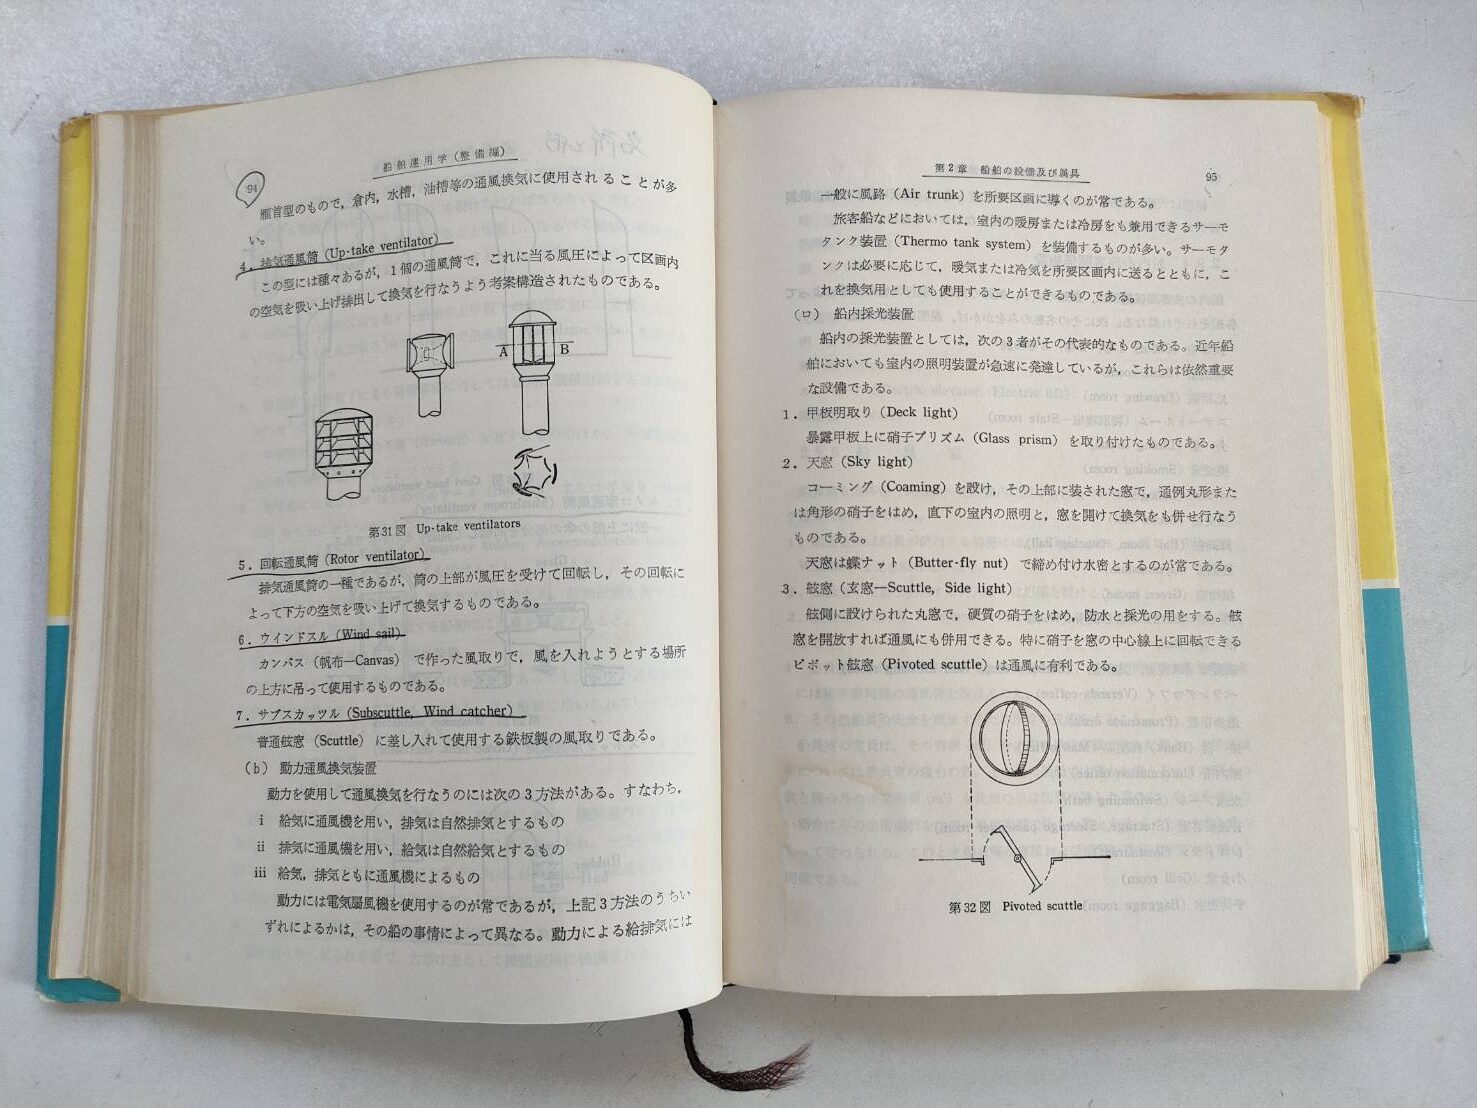 94
船舶運用学（整備編）
雁首型のもので，倉内，水槽，油槽等の通風換気に使用されることが多
い。
4．排気通風筒（Up-take ventilator）
この型には種々あるが，1個の通風筒で，これに当る風圧によって区画内
の空気を吸い上げ排出して換気を行なうよう考案構造されたものである。
A B
第31図 Up-take ventilators
5．回転通風筒（Rotor ventilator）
排気通風筒の一種であるが，筒の上部が風圧を受けて回転し，その回転に
よって下方の空気を吸い上げて換気するものである。
6．ウインドスル（Wind sail）
カンバス（帆布―Canvas）で作った風取りで，風を入れようとする場所
の上方に吊って使用するものである。
7．サブスカッツル（Subscuttle, Wind catcher）
普通舷窓（Scuttle）に差し入れて使用する鉄板製の風取りである。
（b） 動力通風換気装置
動力を使用して通風換気を行なうのには次の3方法がある。すなわち，
i 給気に通風機を用い，排気は自然排気とするもの
ii 排気に通風機を用い，給気は自然給気とするもの
iii 給気，排気ともに通風機によるもの
動力には電気扇風機を使用するのが常であるが，上記3方法のうちい
ずれによるかは，その船の事情によって異なる。動力による給排気には
第2章 船舶の設備及び属具
95
一般に風路（Air trunk）を所要区画に導くのが常である。
旅客船などにおいては，室内の暖房または冷房をも兼用できるサーモ
タンク装置（Thermo tank system）を装備するものが多い。サーモタ
ンクは必要に応じて，暖気または冷気を所要区画内に送るとともに，こ
れを換気用としても使用することができるものである。
（ロ） 船内採光装置
船内の採光装置としては，次の3者がその代表的なものである。近年船
舶においても室内の照明装置が急速に発達しているが，これらは依然重要
な設備である。
1．甲板明取り（Deck light）
暴露甲板上に硝子プリズム（Glass prism）を取り付けたものである。
2．天窓（Sky light）
コーミング（Coaming）を設け，その上部に装された窓で，通例丸形また
は角形の硝子をはめ，直下の室内の照明と，窓を開けて換気をも併せ行なう
ものである。
天窓は蝶ナット（Butter-fly nut）で締め付け水密とするのが常である。
3．舷窓（玄窓―Scuttle, Side light）
舷側に設けられた丸窓で，硬質の硝子をはめ，防水と採光の用をする。舷
窓を開放すれば通風にも併用できる。特に硝子を窓の中心線上に回転できる
ピボット舷窓（Pivoted scuttle）は通風に有利である。
第32図 Pivoted scuttle